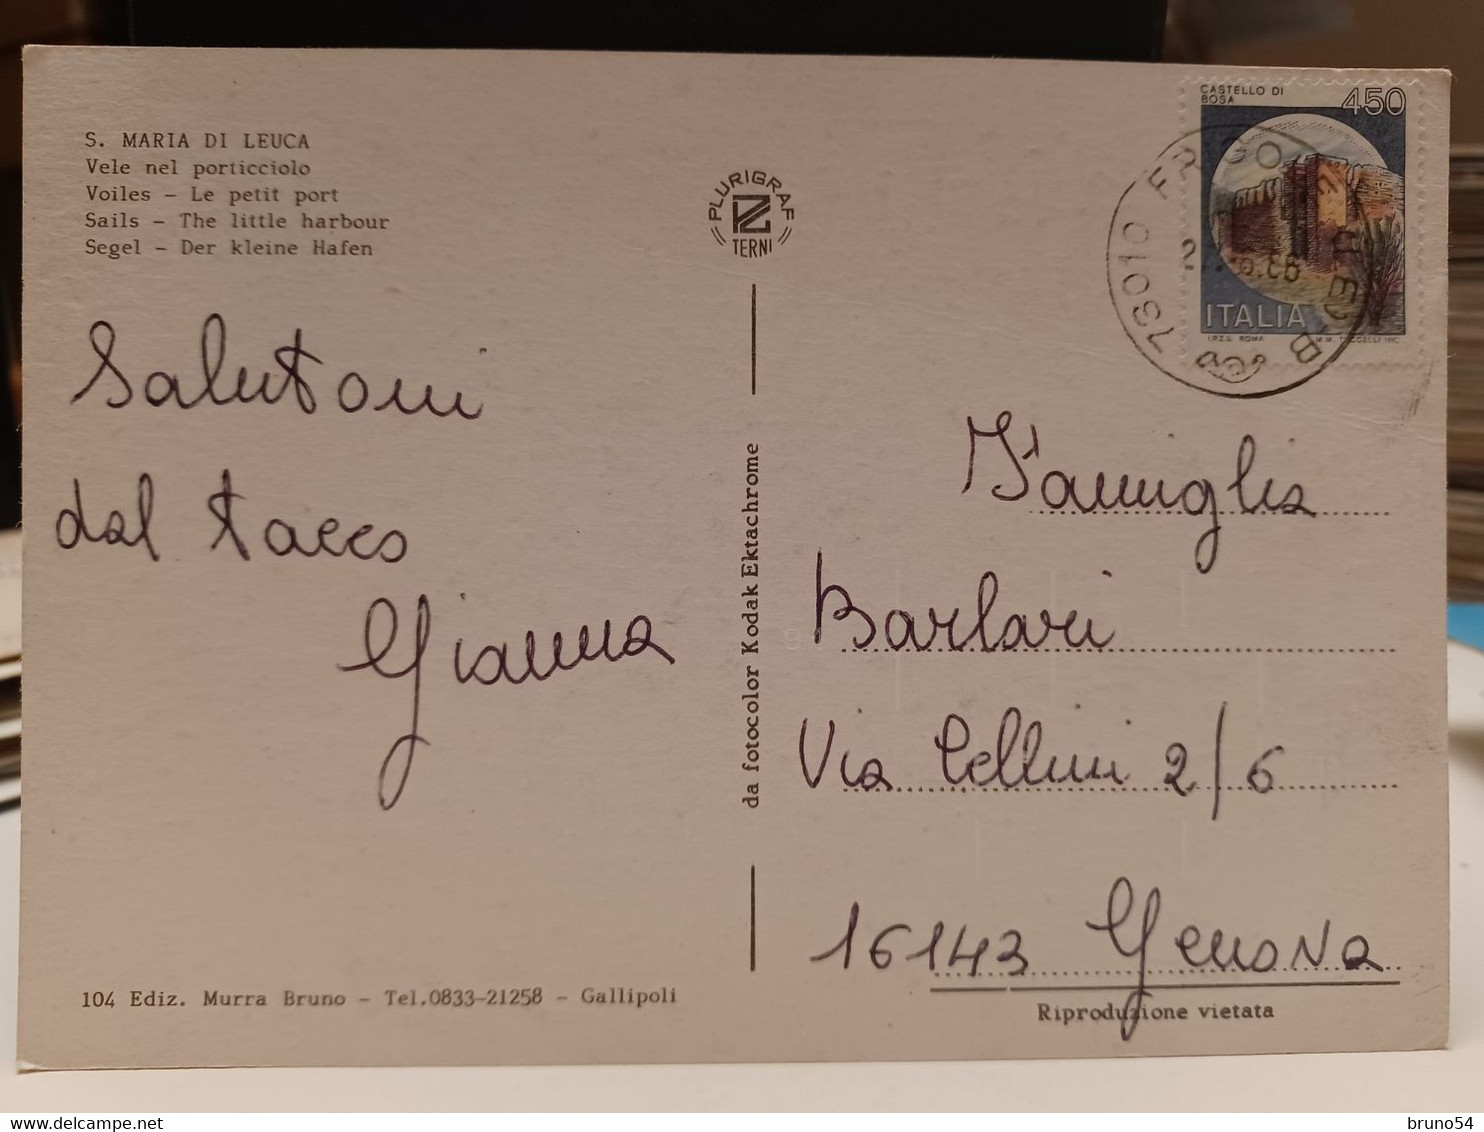 S. MARIA DI LEUCA
Vele nel porticciolo
Voiles - Le petit port
Sails - The little harbour
Segel - Der kleine Hafen
PLURIGRAF
TERNI
CASTELLO DI
BOSA
450
ITALIA
I.P.Z.S. ROMA
Salutoni
dal tacco
Gianna
da fotocolor Kodak Ektachrome
Famiglia
Barlari
Via Cellini 2/6
16143 Genova
104 Ediz. Murra Bruno - Tel.0833-21258 - Gallipoli
Riproduzione vietata
bruno54